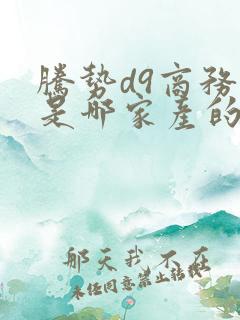 腾势d9商务
是哪家产的
那天我不在
未经同意禁止转载